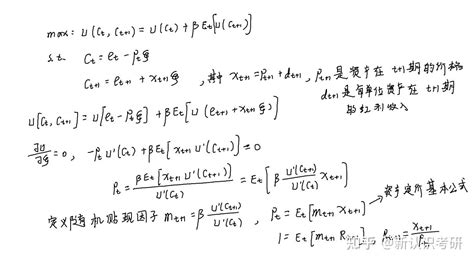 max: U(Ct, Ct+1) = U(Ct) + βEt[U(Ct+1)]
s.t. Ct = et - Ptξ
Ct+1 = et+1 + Xt+1ξ, 其中 Xt+1 = Pt+1 + dt+1, Pt+1是资产在t+1期的价格
dt+1是每单位资产在t+1期
的红利收入
U[Ct, Ct+1] = U[et - Ptξ] + βEt[U(et+1 + Xt+1ξ)]
∂U/∂ξ = 0, -PtU'(Ct) + βEt[Xt+1U'(Ct+1)] = 0
Pt = βEt[Xt+1U'(Ct+1)]/U'(Ct) = Et[β U'(Ct+1)/U'(Ct) Xt+1]
→ 资产定价基本公式
定义随机贴现因子 mt+1 = β U'(Ct+1)/U'(Ct), Pt = Et[mt+1 Xt+1]
1 = Et[mt+1 Rt+1], Rt+1 = Xt+1/Pt
知乎 @新认识考研